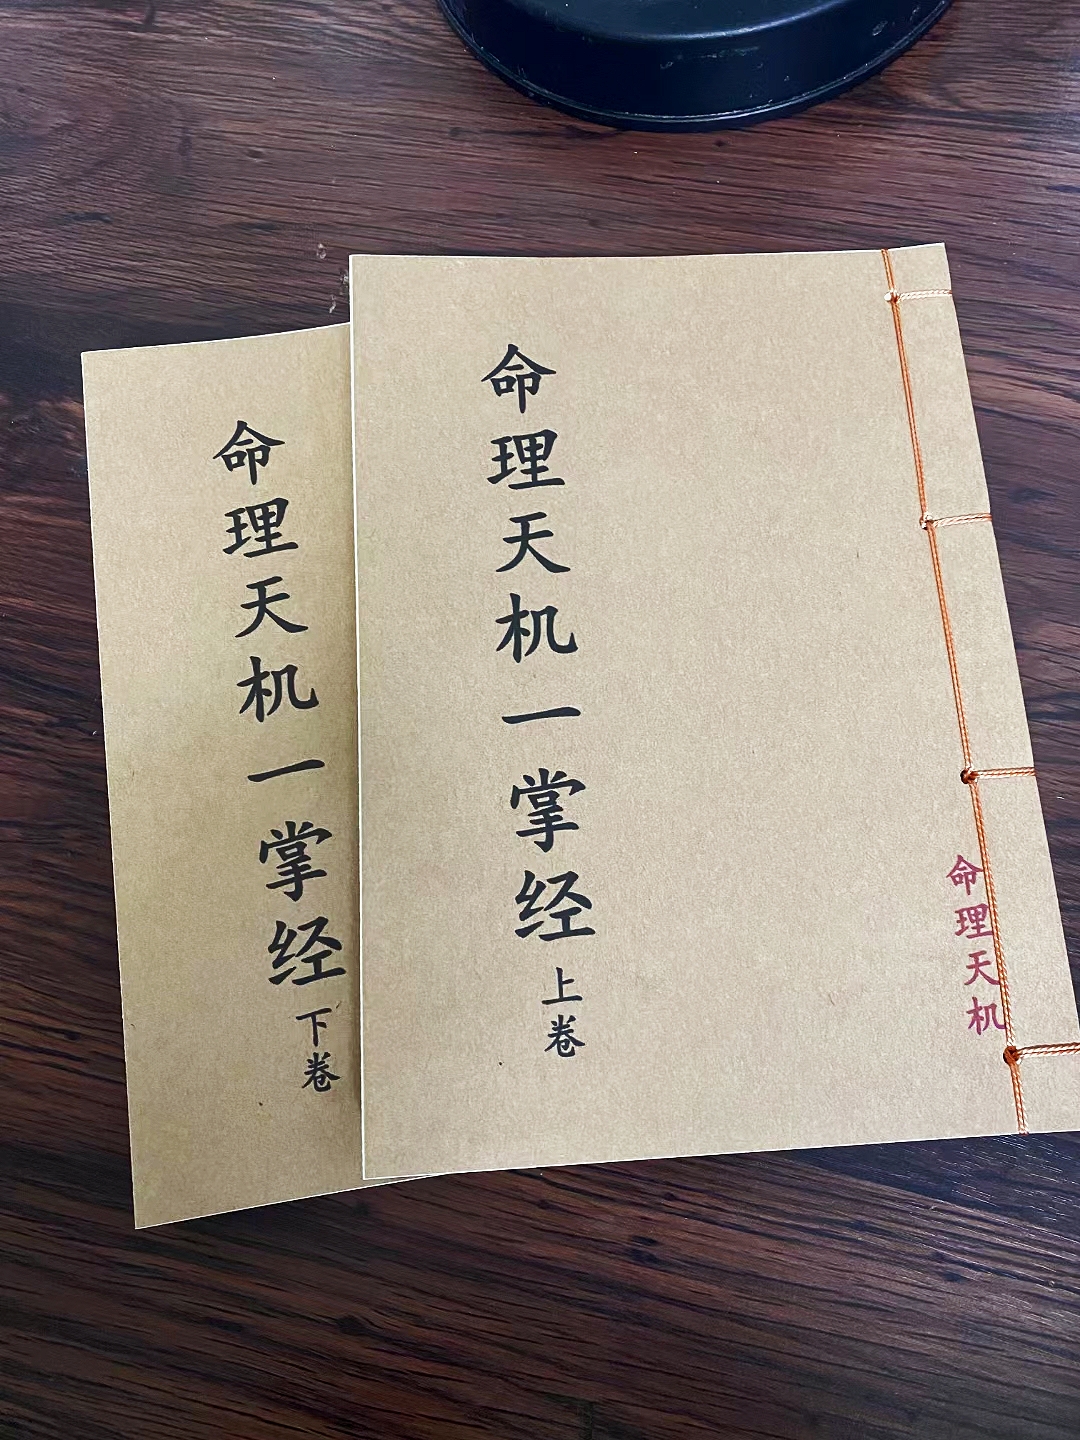 命理天机一掌经 上卷
命理天机
命理天机一掌经 下卷